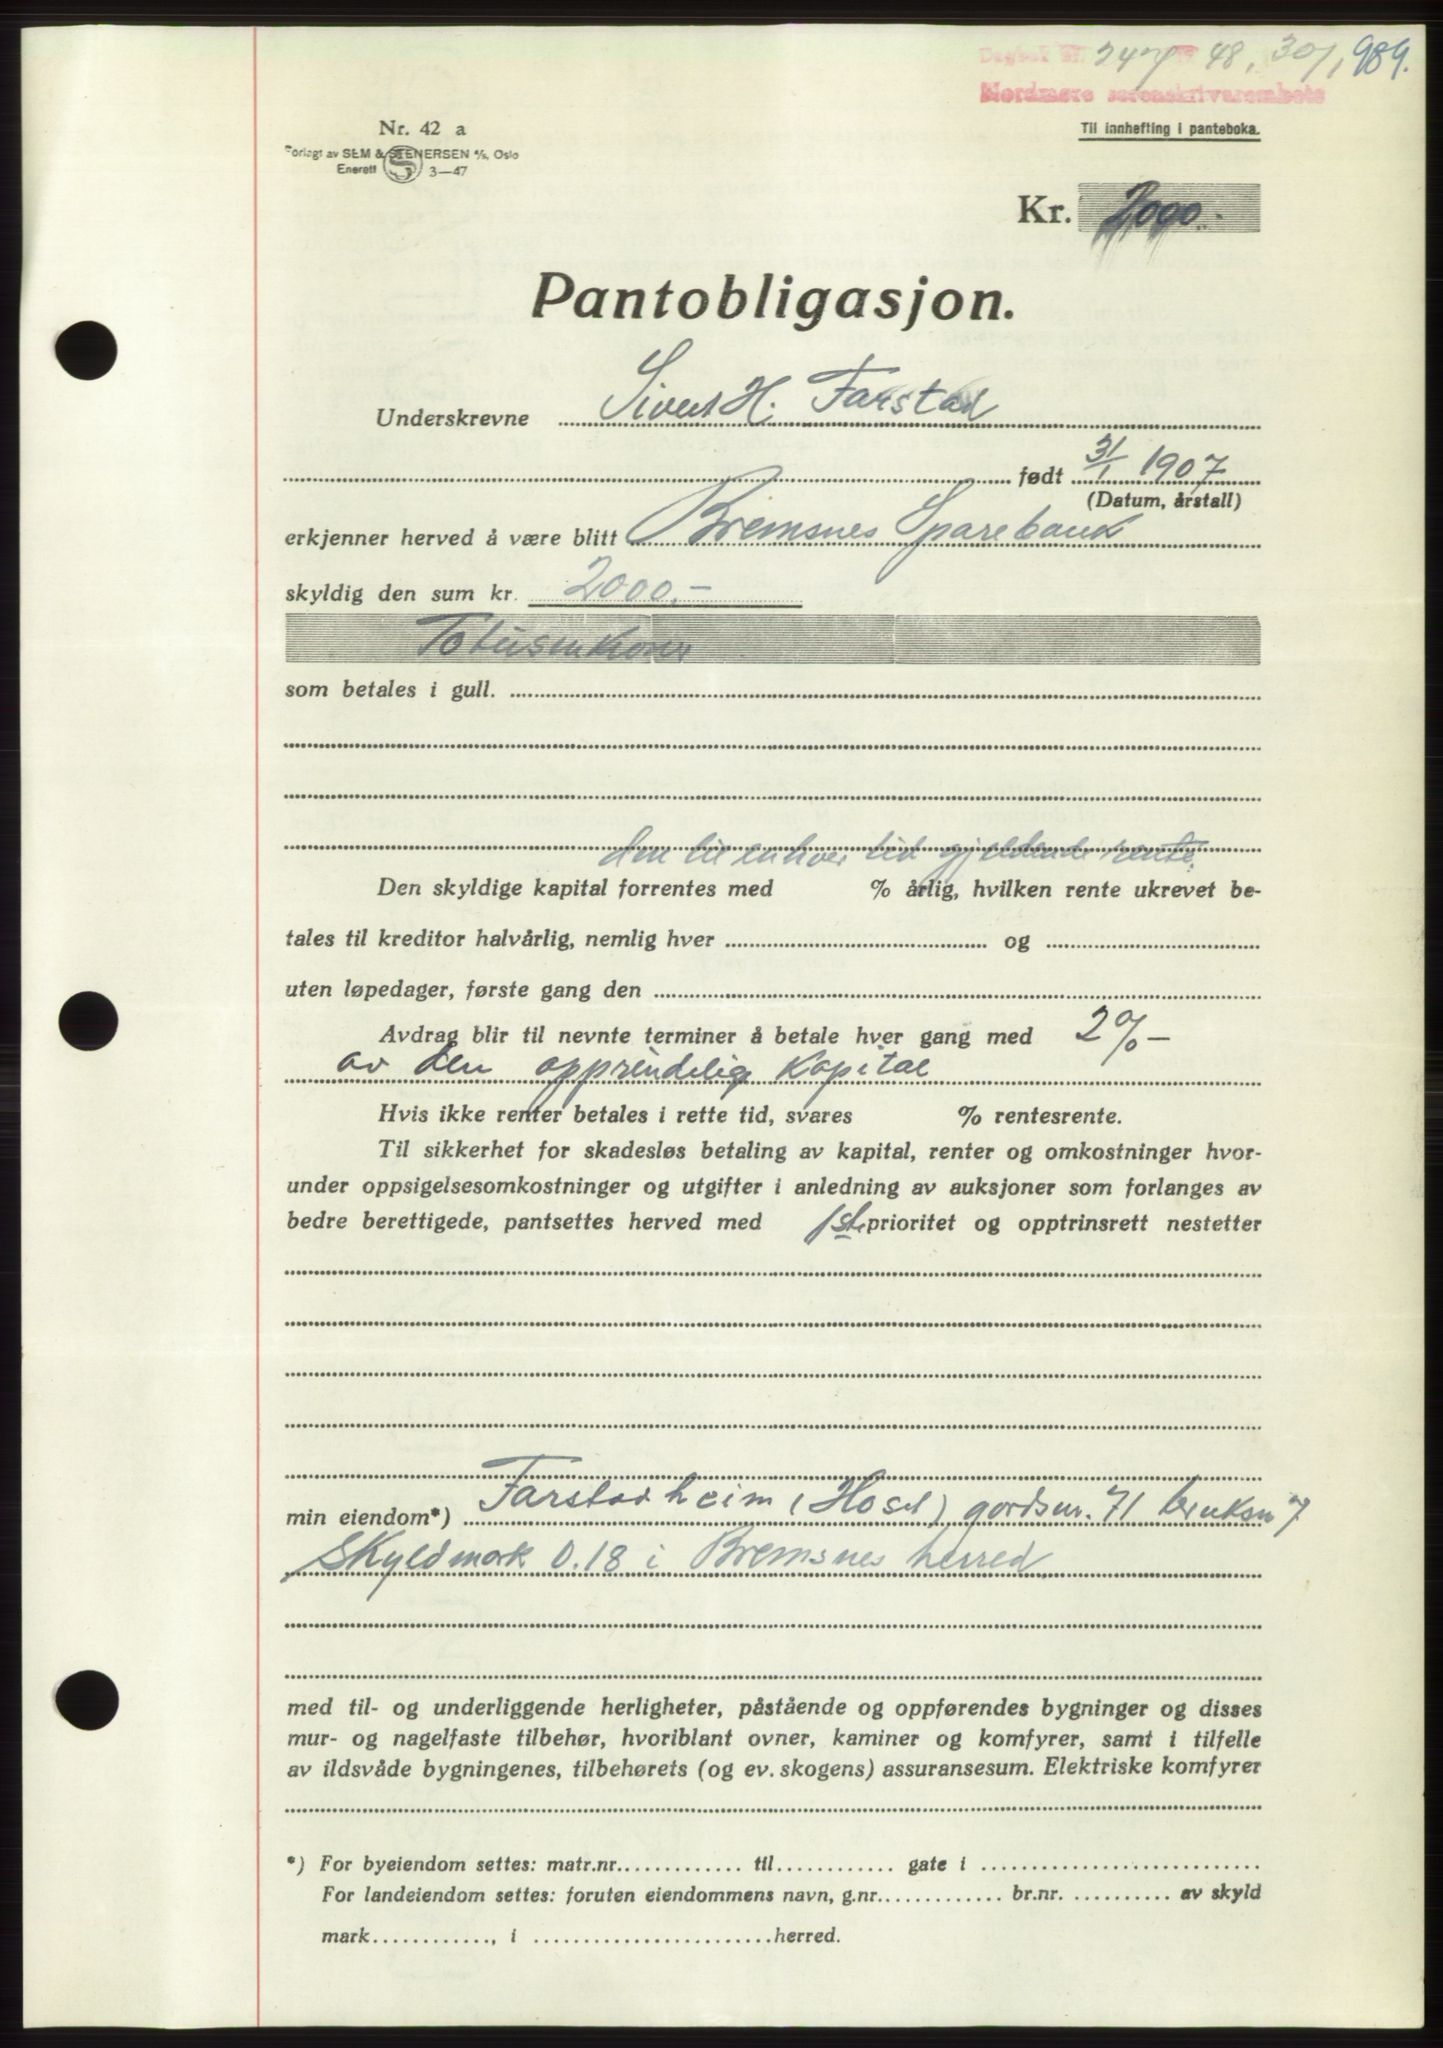 Dagbok nr. 247 48, 30/1 989.
Nordmøre sorenskriverembete
Nr. 42 a
Til innhefting i panteboka.
Forlagt av SEM & STENERSEN A/S, Oslo
Enerett S 3—47
Kr. 2000.-
Pantobligasjon.
Underskrevne Sivert H. Farstad
født 31/1 1907
(Datum, årstall)
erkjenner herved å være blitt Bremsnes Sparebank
skyldig den sum kr. 2000.-
Totusenkoner
som betales i gull.
den til enhver tid gjeldende rente.
Den skyldige kapital forrentes med % årlig, hvilken rente ukrevet be-
tales til kreditor halvårlig, nemlig hver og
uten løpedager, første gang den
Avdrag blir til nevnte terminer å betale hver gang med 2%-
av den opprindelig Kapital
Hvis ikke renter betales i rette tid, svares % rentesrente.
Til sikkerhet for skadesløs betaling av kapital, renter og omkostninger hvor-
under oppsigelsesomkostninger og utgifter i anledning av auksjoner som forlanges av
bedre berettigede, pantsettes herved med 1ste prioritet og opptrinsrett nestetter
min eiendom*) Farstadheim (Hosel) gordsnr. 71 bruksn 7
Skyldmark 0.18 i Bremsnes herred
med til- og underliggende herligheter, påstående og oppførendes bygninger og disses
mur- og nagelfaste tilbehør, hvoriblant ovner, kaminer og komfyrer, samt i tilfelle
av ildsvåde bygningenes, tilbehørets (og ev. skogens) assuransesum. Elektriske komfyrer
*) For byeiendom settes: matr.nr............. til............ gate i ............................
For landeiendom settes: foruten eiendommens navn, g.nr............. br.nr. .......... av skyld
mark............, i ........................herred.